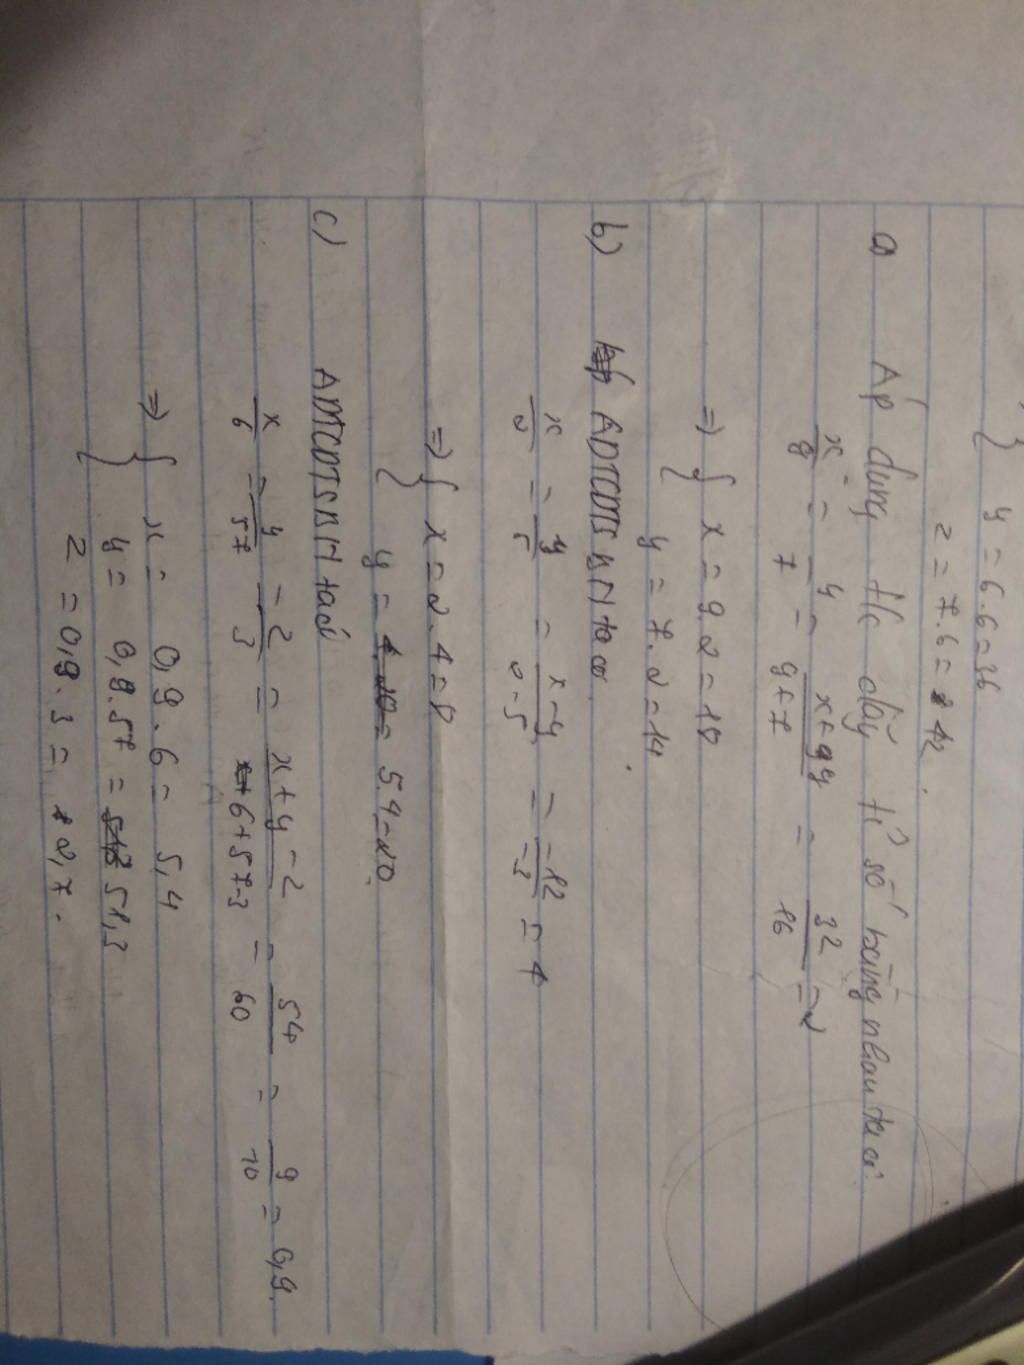 y = 6.6 = 36
z = 7.6 = 42.
a) Áp dụng t/c dãy tỉ số bằng nhau ta có
x/9 = y/7 = x+y/9+7 = 32/16 = 2
=> { x = 9.2 = 18
y = 7.2 = 14
b) ADTCDTSBN ta có
x/2 = y/5 = x-y/2-5 = -12/-3 = 4
=> { x = 2.4 = 8
y = 5.4 = 20.
c) ADTCDTSBN ta có
x/6 = y/57 = z/3 = x+y-z/6+57-3 = 54/60 = 9/10 = 0,9.
=> { x = 0,9.6 = 5,4
y = 0,9.57 = 51,3
z = 0,9.3 = 2,7.